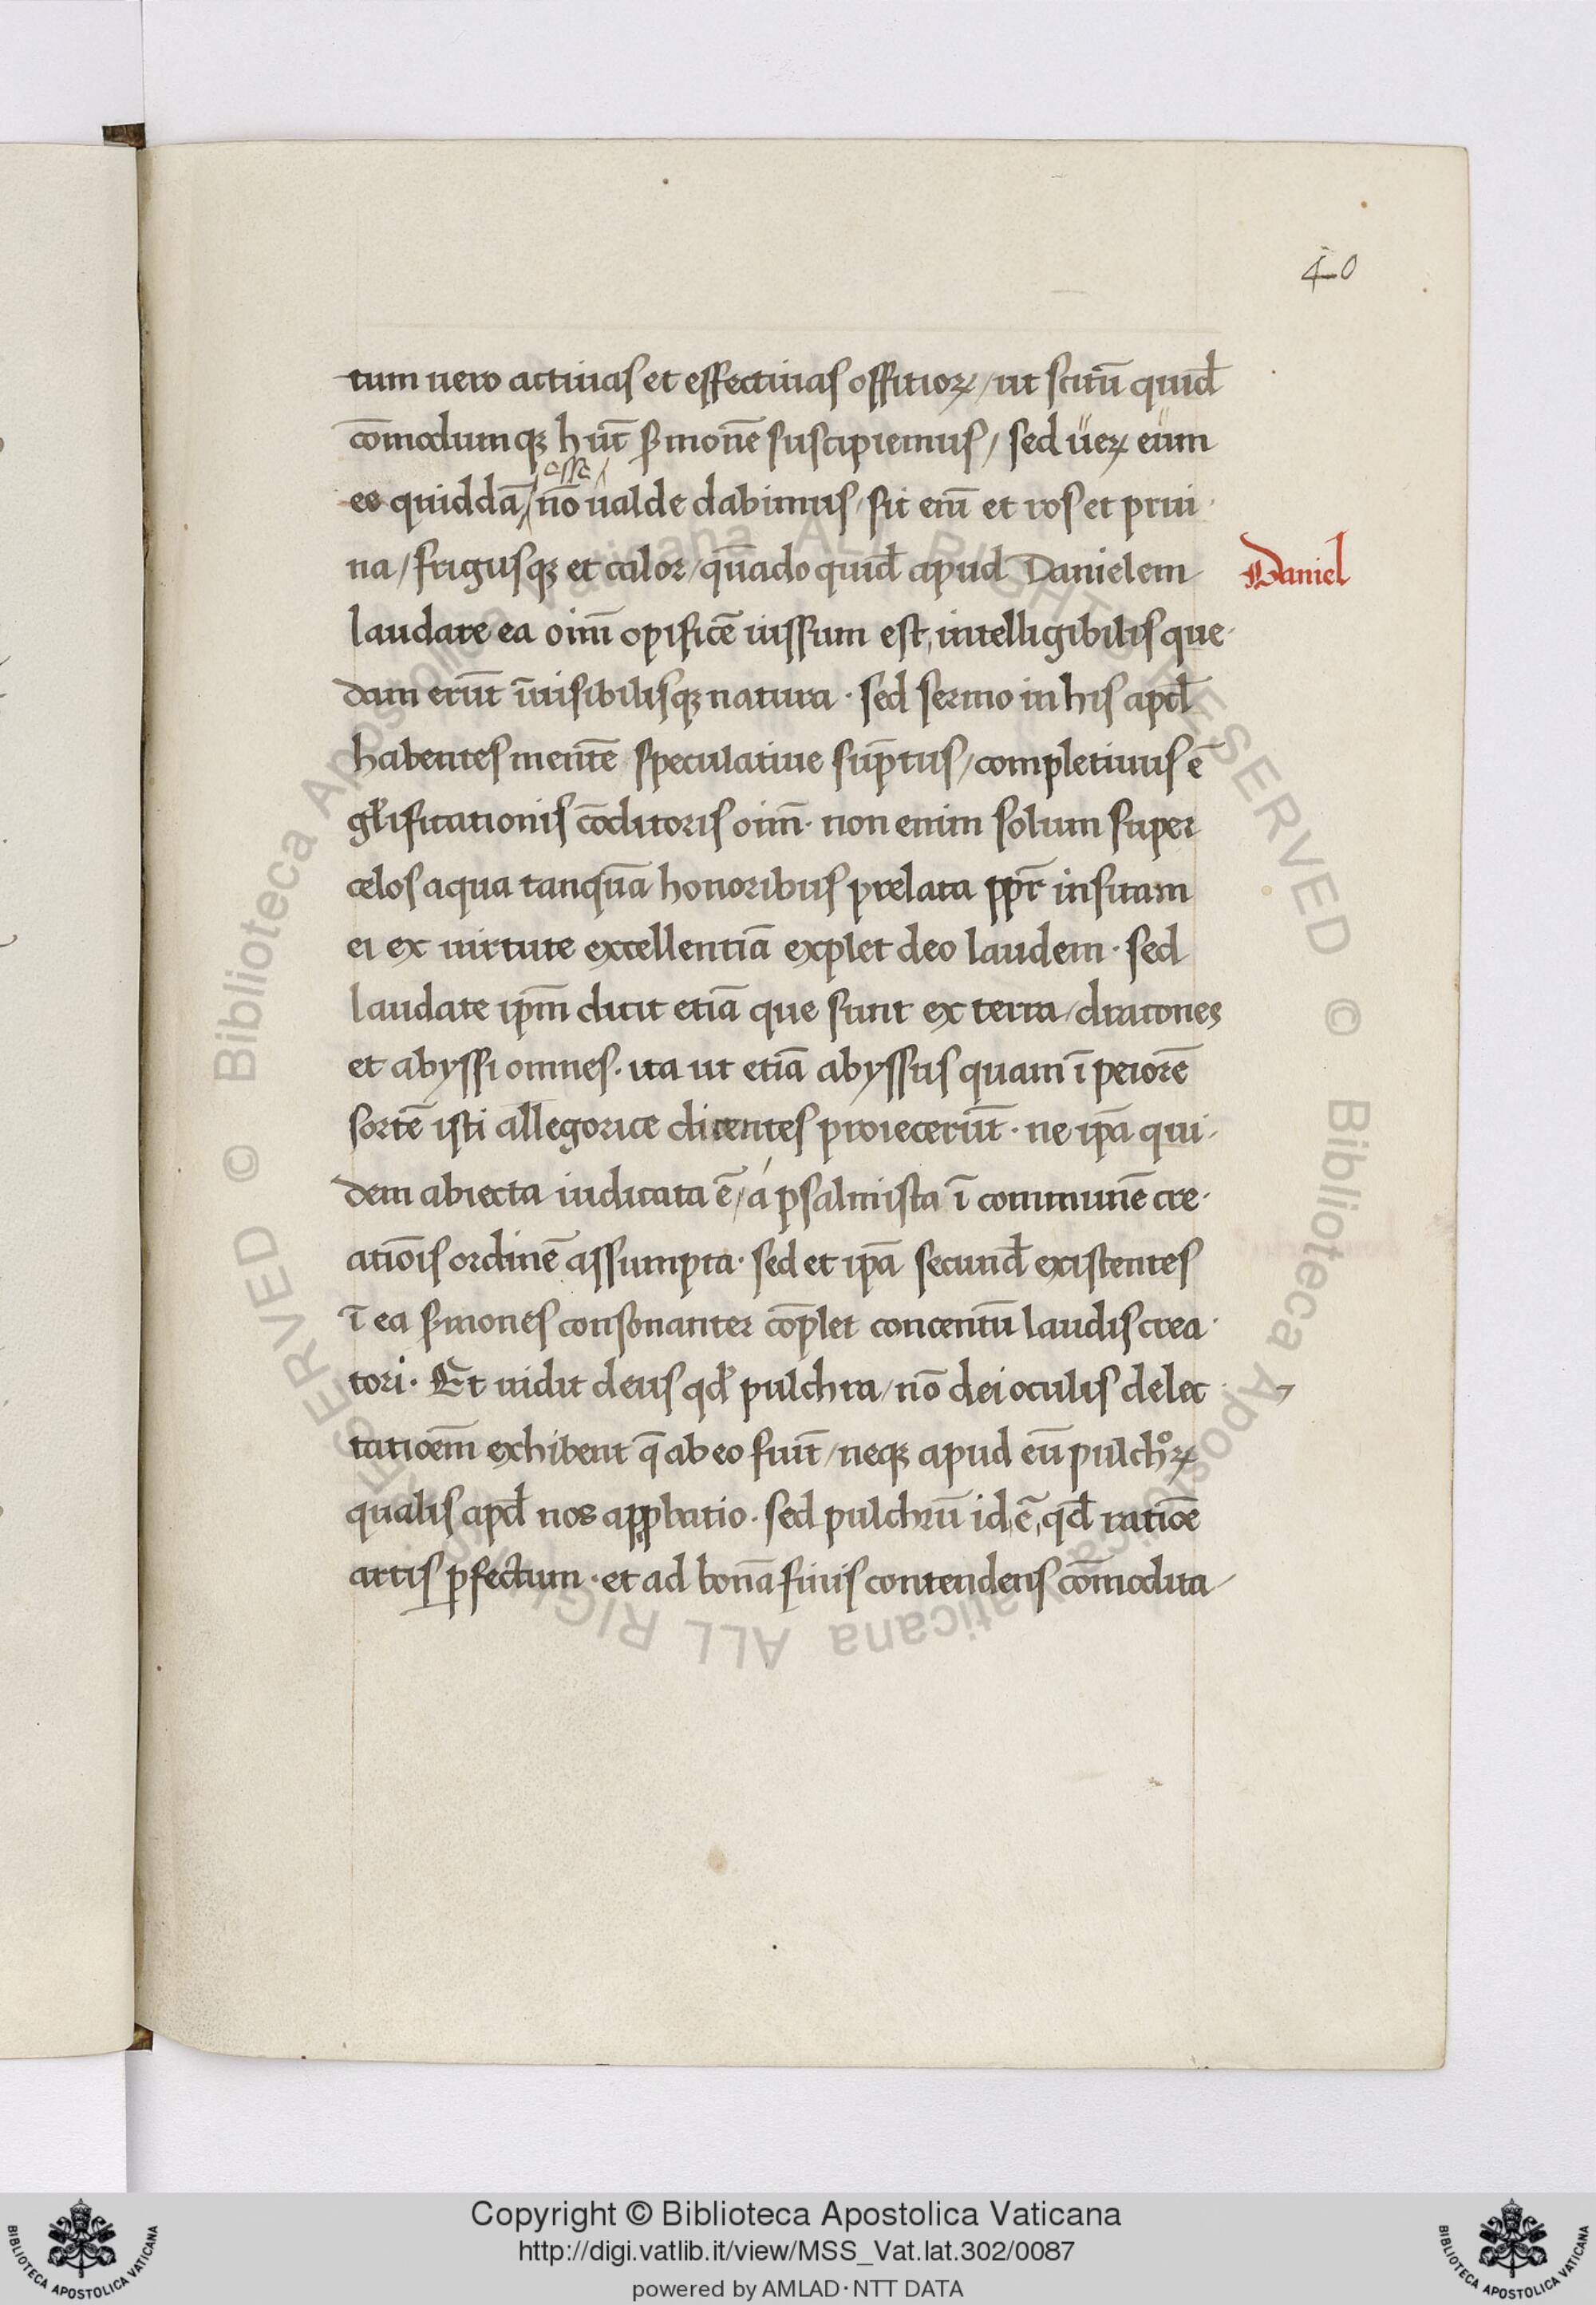 40
tum uero actiuas et effectiuas offitioꝝ / ut scitū quid̄
cōmodumqꝫ h̄ut̄ s̄monē suscipiemus / sed ueꝝ eum
esse
eo quiddā / nō ualde dabimus / sit eni̅ et ros et prui
na / frigusqꝫ et calor / qn̄ado quid̄ apud Danielem
Daniel
laudare ea oim̄ opificē iussum est, intelligibilis que
dam erūt īuisibilisqꝫ natura · sed sermo in his apd̄
habentes mentē speculatiue sūptus / completiuus ē
gl̄ificationis cōditoris oim̄ · non enim solum super
celos aqua tanquā honoribus prelata ꝓpt̄ insitam
ei ex uirtute excellentiā explet deo laudem · sed
laudate ip̄m dicit etiā que sunt ex terra / dracones
et abyssi omnes · ita ut etiā abyssus quam ī peiorē
sortē isti allegorice dicentes proiecerūt · ne ip̄a qui
dem abiecta iudicata ē / á psalmista ī communē cre
atiōis ordinē assumpta · sed et ip̄a secund̄ existentes
ī ea s̄mones consonanter cōplet concentū laudis crea
tori · Et uidit deus qd̄ pulchra / nō dei oculis delec
tatioēm exhibent q̄ ab eo fiūt / neqꝫ apud eū pulchoꝝ
qualis apd̄ nos apꝓbatio · sed pulchrū id ē, qd̄ ratiōe
artis ꝑfectum · et ad bonā finis contendens cōmodita
Copyright © Biblioteca Apostolica Vaticana
http://digi.vatlib.it/view/MSS_Vat.lat.302/0087
powered by AMLAD·NTT DATA